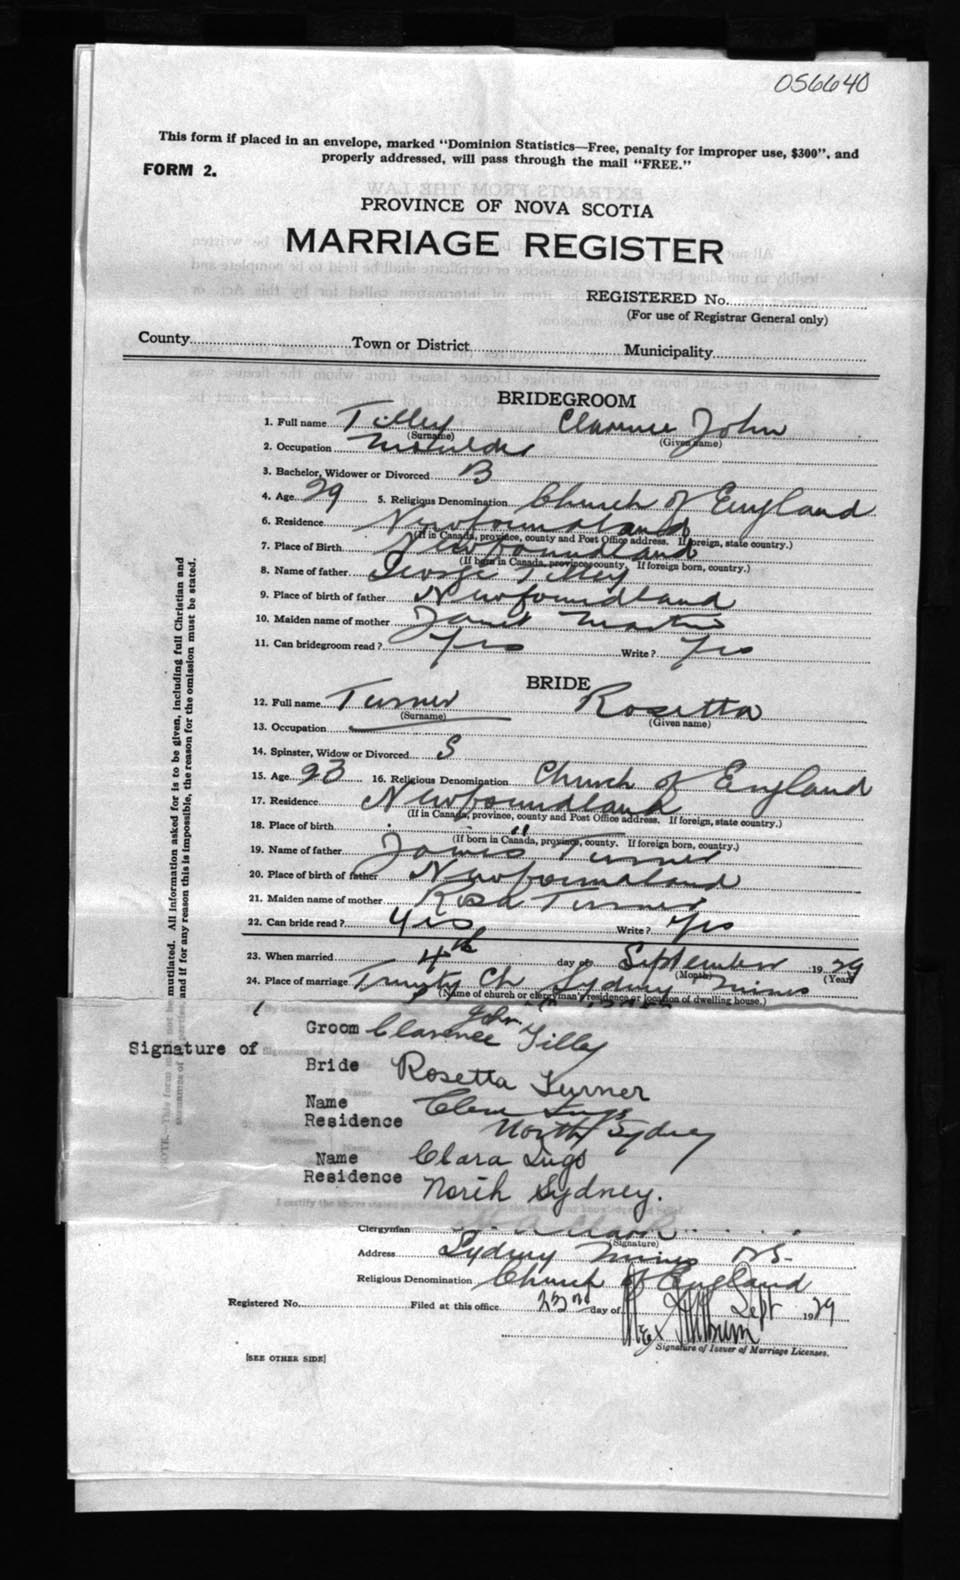 056640
This form if placed in an envelope, marked "Dominion Statistics—Free, penalty for improper use, $300", and
properly addressed, will pass through the mail "FREE."
FORM 2.
PROVINCE OF NOVA SCOTIA
MARRIAGE REGISTER
REGISTERED No.
(For use of Registrar General only)
County Town or District Municipality
BRIDEGROOM
1. Full name Tilley Clarence John
(Surname) (Given name)
2. Occupation Moulder
3. Bachelor, Widower or Divorced B
4. Age 29 5. Religious Denomination Church of England
6. Residence Newfoundland
(If in Canada, province, county and Post Office address. If foreign, state country.)
7. Place of Birth Newfoundland
(If born in Canada, province, county. If foreign born, country.)
8. Name of father George Tilley
9. Place of birth of father Newfoundland
10. Maiden name of mother Janet Martin
11. Can bridegroom read? Yes Write? Yes
BRIDE
12. Full name Turner Rosetta
(Surname) (Given name)
13. Occupation
14. Spinster, Widow or Divorced S
15. Age 23 16. Religious Denomination Church of England
17. Residence Newfoundland
(If in Canada, province, county and Post Office address. If foreign, state country.)
18. Place of birth "
(If born in Canada, province, county. If foreign born, country.)
19. Name of father James Turner
20. Place of birth of father Newfoundland
21. Maiden name of mother Rosa Turner
22. Can bride read? Yes Write? Yes
23. When married 4th day of September 1929
(Month) (Year)
24. Place of marriage Trinity Ch Sydney Mines
(Name of church or clergyman's residence or location of dwelling house.)
Signature of
Groom Clarence John Tilley
Bride Rosetta Turner
Name Clem
Residence North Sydney
Name Clara
Residence North Sydney.
Clergyman A Clark
(Signature)
Address Sydney Mines N S.
Religious Denomination Church of England
Registered No. Filed at this office 23rd day of Sept 1929
Signature of Issuer of Marriage Licenses.
[SEE OTHER SIDE]
mutilated. All information asked for is to be given, including full Christian and
and if for any reason this is impossible, the reason for the omission must be stated.